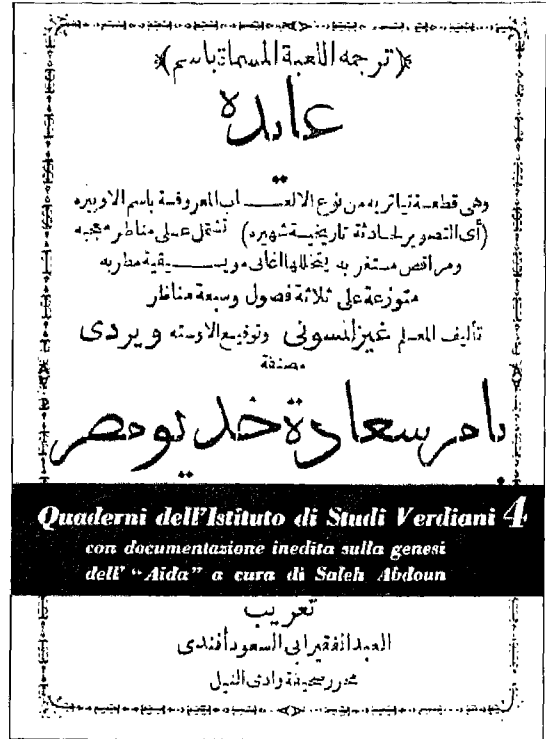 ﴿ترجمه اللعبة المسماة باسم﴾
عايدة
وهى قطعـة تياتريه من نوع الالعــاب المعروفـة باسم الاوپيره
(أى التصوير لحادثة تاريخيـة شهيره) تشتمل عـلى مناظر معجبه
ومراقص مستغربه يتخللها اغانى مويسـيقية مطربه
متوزعة على ثلاثة فصول وسبعة مناظر
تأليف المعـلم غيزلنسونى وتوقيـع الاوسته ويردى
مصنفة
بامر سعادة خديو مصر
Quaderni dell'Istituto di Studi Verdiani 4
con documentazione inedita sulla genesi
dell' "Aida" a cura di Saleh Abdoun
تعريب
العبد الفقير ابى السعود أفندى
محرر صحيفة وادى النيل